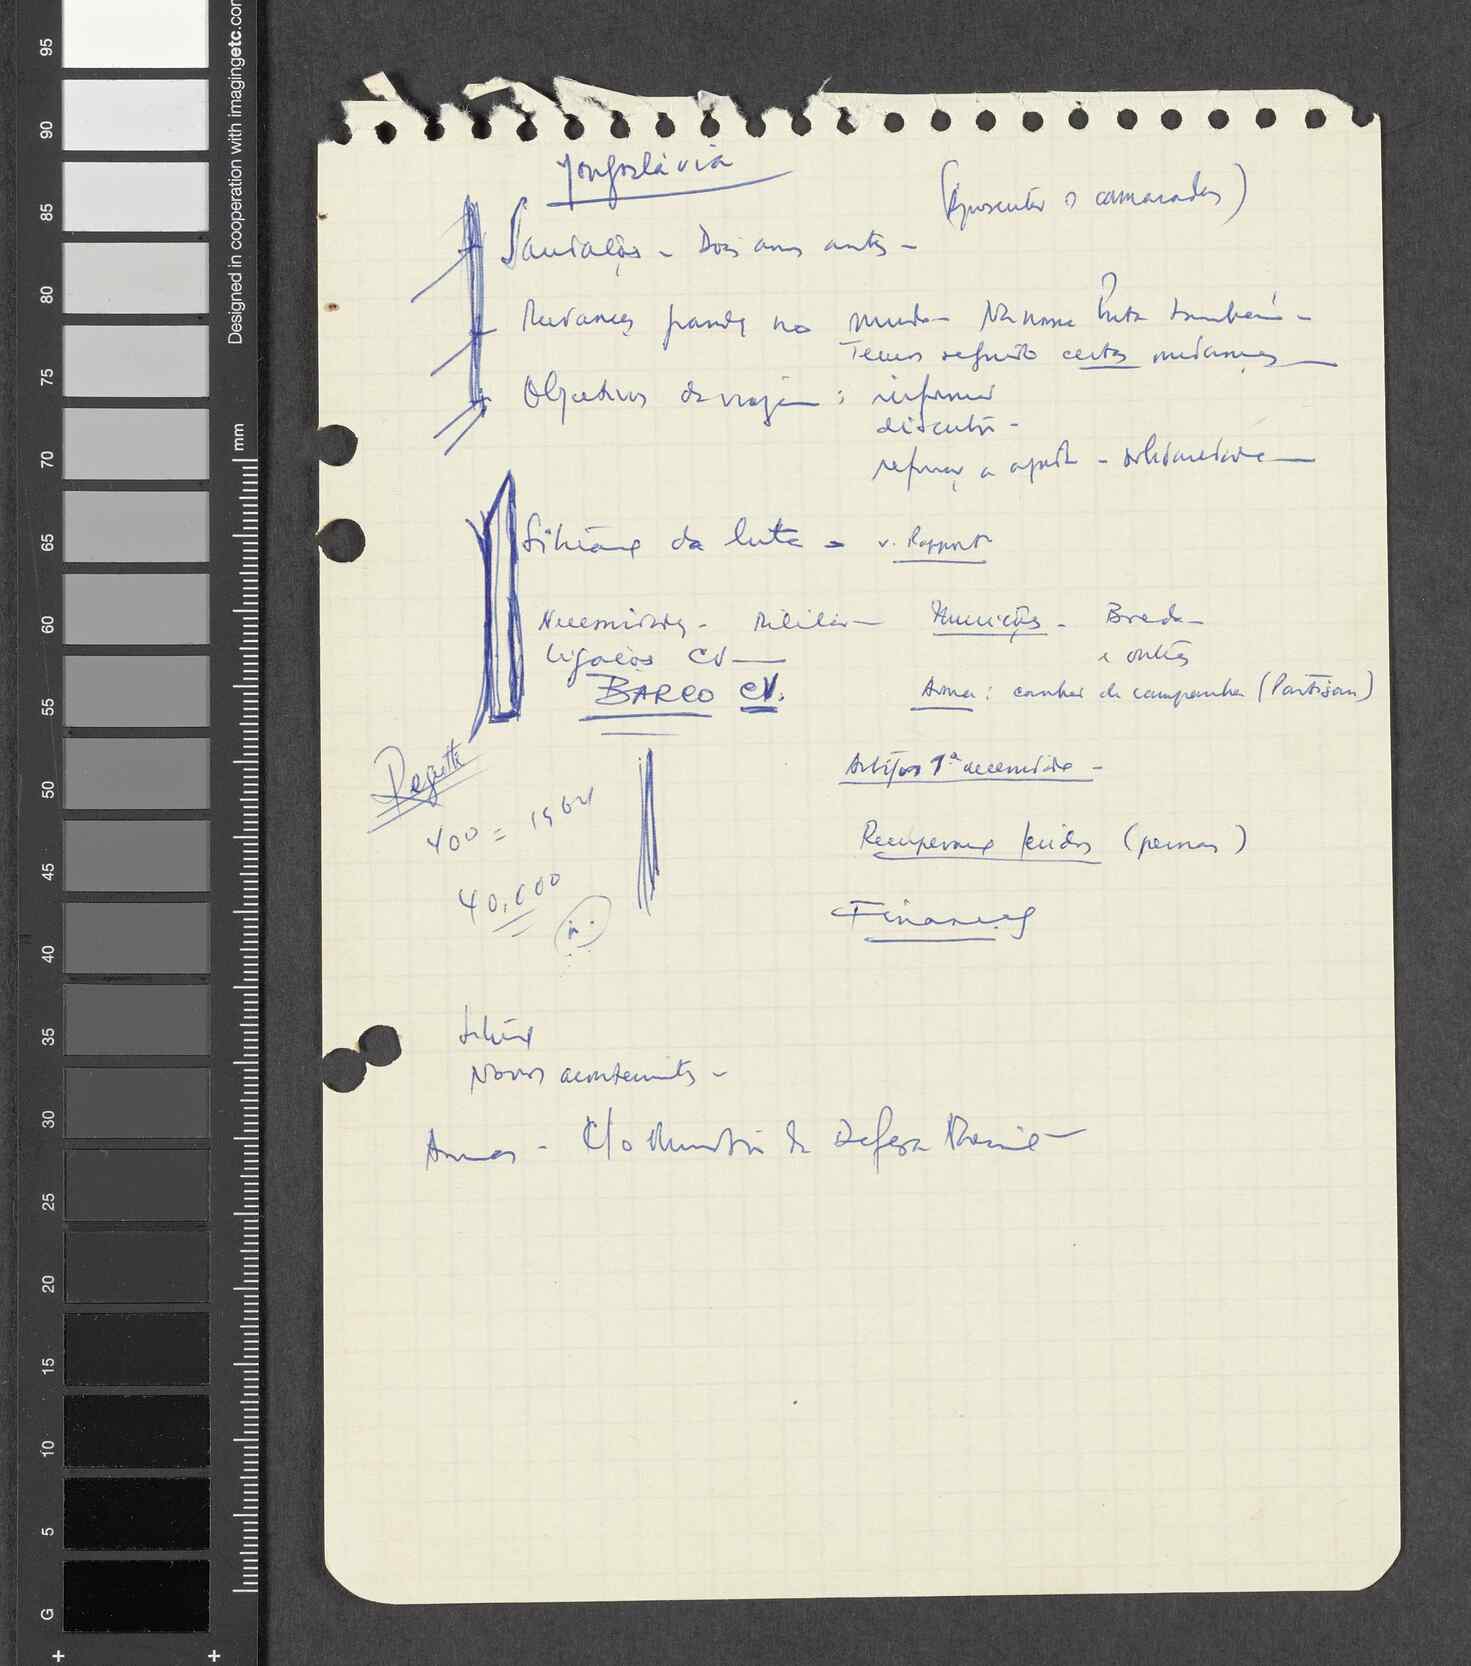 Jougoslávia
(Apresentar os camaradas)
Saudações - Dois anos antes -
Mudanças grandes no mundo - Na nossa luta também -
Temos seguido certas mudanças
Objectivos da viagem : informar
discutir -
reforçar a ajuda - solidariedade
Situação da luta - v. Rapport
Necessidades - Militar - Munições - Breda -
e outras
Ligações CV
BARCO CV.
Armas : canhão de campanha (Partisan)
Artigos 1ª necessidade -
400 = 1964
Recuperação feridos (pernas)
40.000
Finanças
Novos acontecimentos -
Armas - C/o Ministério da Defesa
95
90
85
80
75
70
65
60
55
50
45
40
35
30
25
20
15
10
5
G
mm
Designed in cooperation with imagingetc.com